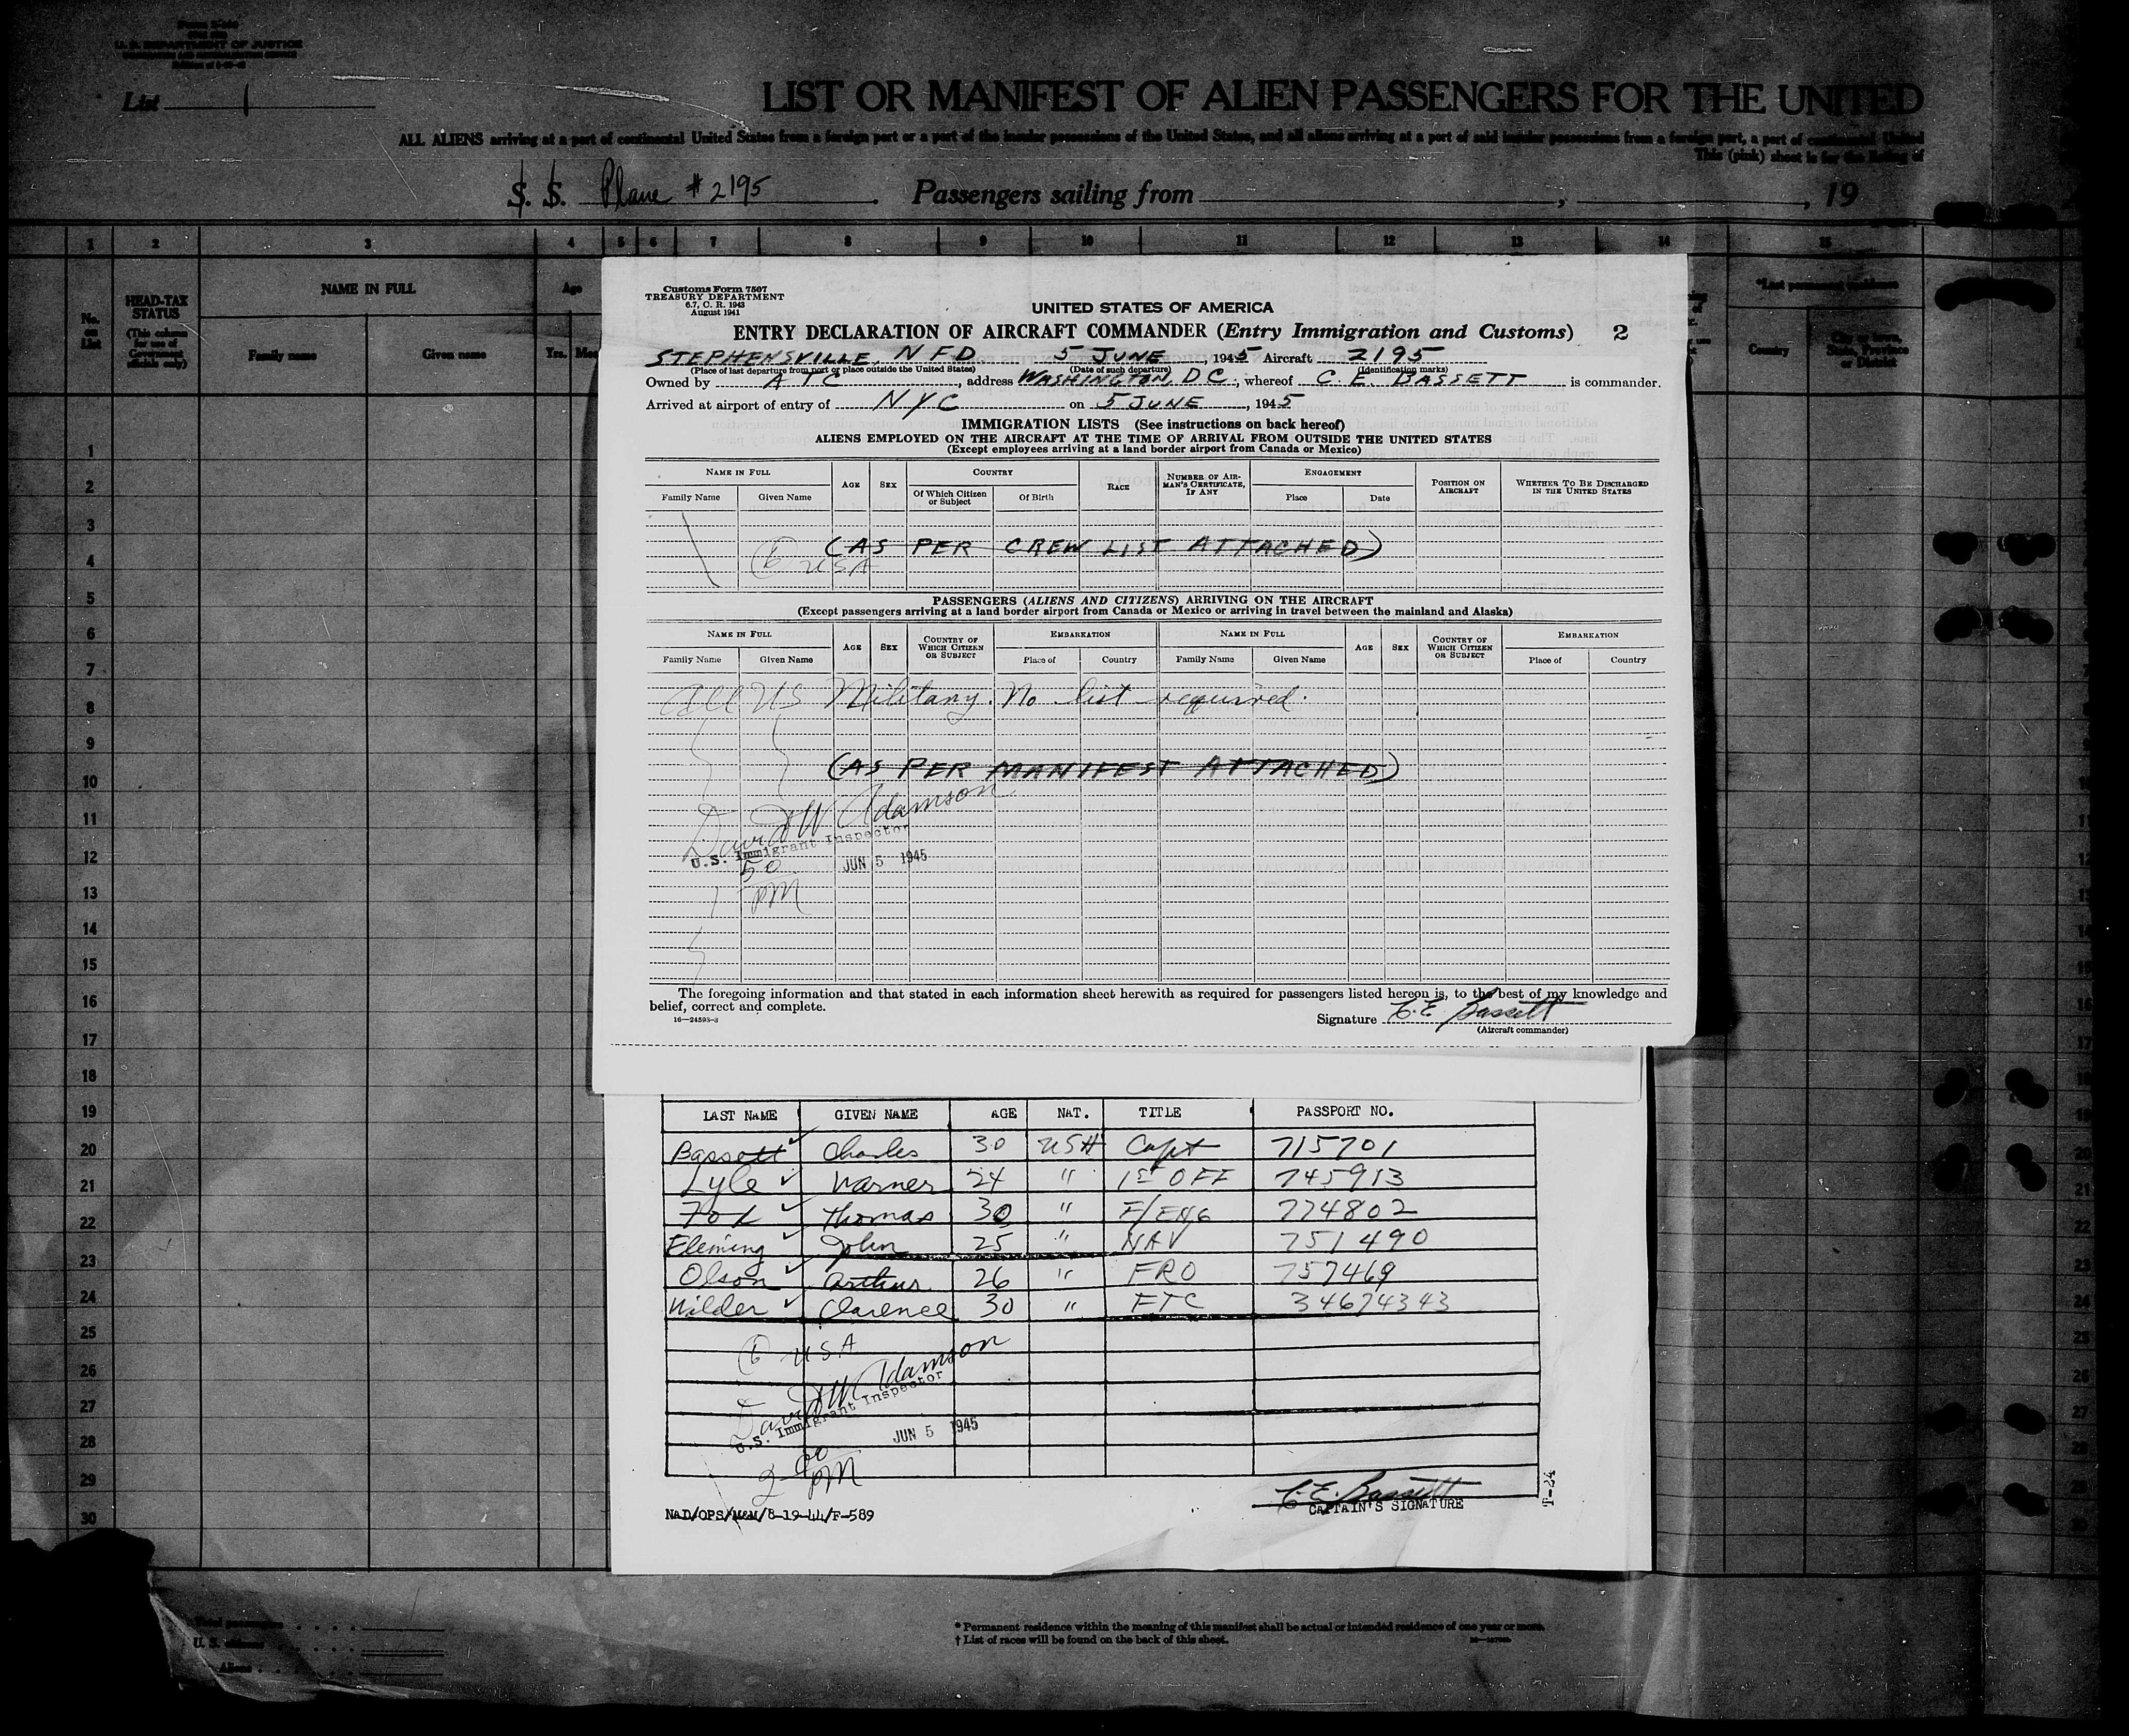 U. S. DEPARTMENT OF JUSTICE
List 1
LIST OR MANIFEST OF ALIEN PASSENGERS FOR THE UNITED
ALL ALIENS arriving at a port of continental United States from a foreign port or a port of the insular possessions of the United States, and all aliens arriving at a port of said insular possessions from a foreign port, a port of continental United
This (pink) sheet is for the listing of
S. S. Plane #2195 Passengers sailing from , , 19
1 2 3 4 5 6 7 8 9 10 11 12 13 14 15
No. on List
HEAD-TAX STATUS
(This column for use of Government officials only)
NAME IN FULL
Family name Given name
Age
Yrs. Mos
Country
City or town, State, Province or District
1
2
3
4
5
6
7
8
9
10
11
12
13
14
15
16
17
18
19
20
21
22
23
24
25
26
27
28
29
30
Customs Form 7507
TREASURY DEPARTMENT
6.7, C. R. 1943
August 1941
UNITED STATES OF AMERICA
ENTRY DECLARATION OF AIRCRAFT COMMANDER (Entry Immigration and Customs) 2
STEPHENSVILLE, NFD 5 JUNE, 1945 Aircraft 2195
(Place of last departure from port or place outside the United States) (Date of such departure) (Identification marks)
Owned by ATC, address WASHINGTON, DC, whereof C. E. BASSETT is commander.
Arrived at airport of entry of NYC on 5 JUNE, 1945
IMMIGRATION LISTS (See instructions on back hereof)
ALIENS EMPLOYED ON THE AIRCRAFT AT THE TIME OF ARRIVAL FROM OUTSIDE THE UNITED STATES
(Except employees arriving at a land border airport from Canada or Mexico)
NAME IN FULL AGE SEX COUNTRY RACE NUMBER OF AIRMAN'S CERTIFICATE, IF ANY ENGAGEMENT POSITION ON AIRCRAFT WHETHER TO BE DISCHARGED IN THE UNITED STATES
Family Name Given Name Of Which Citizen or Subject Of Birth Place Date
(AS PER CREW LIST ATTACHED)
6 USA
PASSENGERS (ALIENS AND CITIZENS) ARRIVING ON THE AIRCRAFT
(Except passengers arriving at a land border airport from Canada or Mexico or arriving in travel between the mainland and Alaska)
NAME IN FULL AGE SEX COUNTRY OF WHICH CITIZEN OR SUBJECT EMBARKATION NAME IN FULL AGE SEX COUNTRY OF WHICH CITIZEN OR SUBJECT EMBARKATION
Family Name Given Name Place of Country Family Name Given Name Place of Country
All US Military. No list required.
(AS PER MANIFEST ATTACHED)
David W Adamson
U.S. Immigrant Inspector
JUN 5 1945
50
PM
The foregoing information and that stated in each information sheet herewith as required for passengers listed hereon is, to the best of my knowledge and
belief, correct and complete.
16—24593-3
Signature C.E. Bassett
(Aircraft commander)
LAST NAME GIVEN NAME AGE NAT. TITLE PASSPORT NO.
Bassett Charles 30 USA Capt 715701
Lyle Warner 24 " 1st OFF 745913
Fox Thomas 30 " F/ENG 774802
Fleming John 25 " NAV 751490
Olson Arthur 26 " FRO 757469
Wilder Clarence 30 " FTC 34674343
6 USA
David W Adamson
U.S. Immigrant Inspector
JUN 5 1945
2-00
PM
C.E. Bassett
CAPTAIN'S SIGNATURE
NAD/OPS/M&M/8-19-44/F-589
T-24
* Permanent residence within the meaning of this manifest shall be actual or intended residence of one year or more.
† List of races will be found on the back of this sheet.